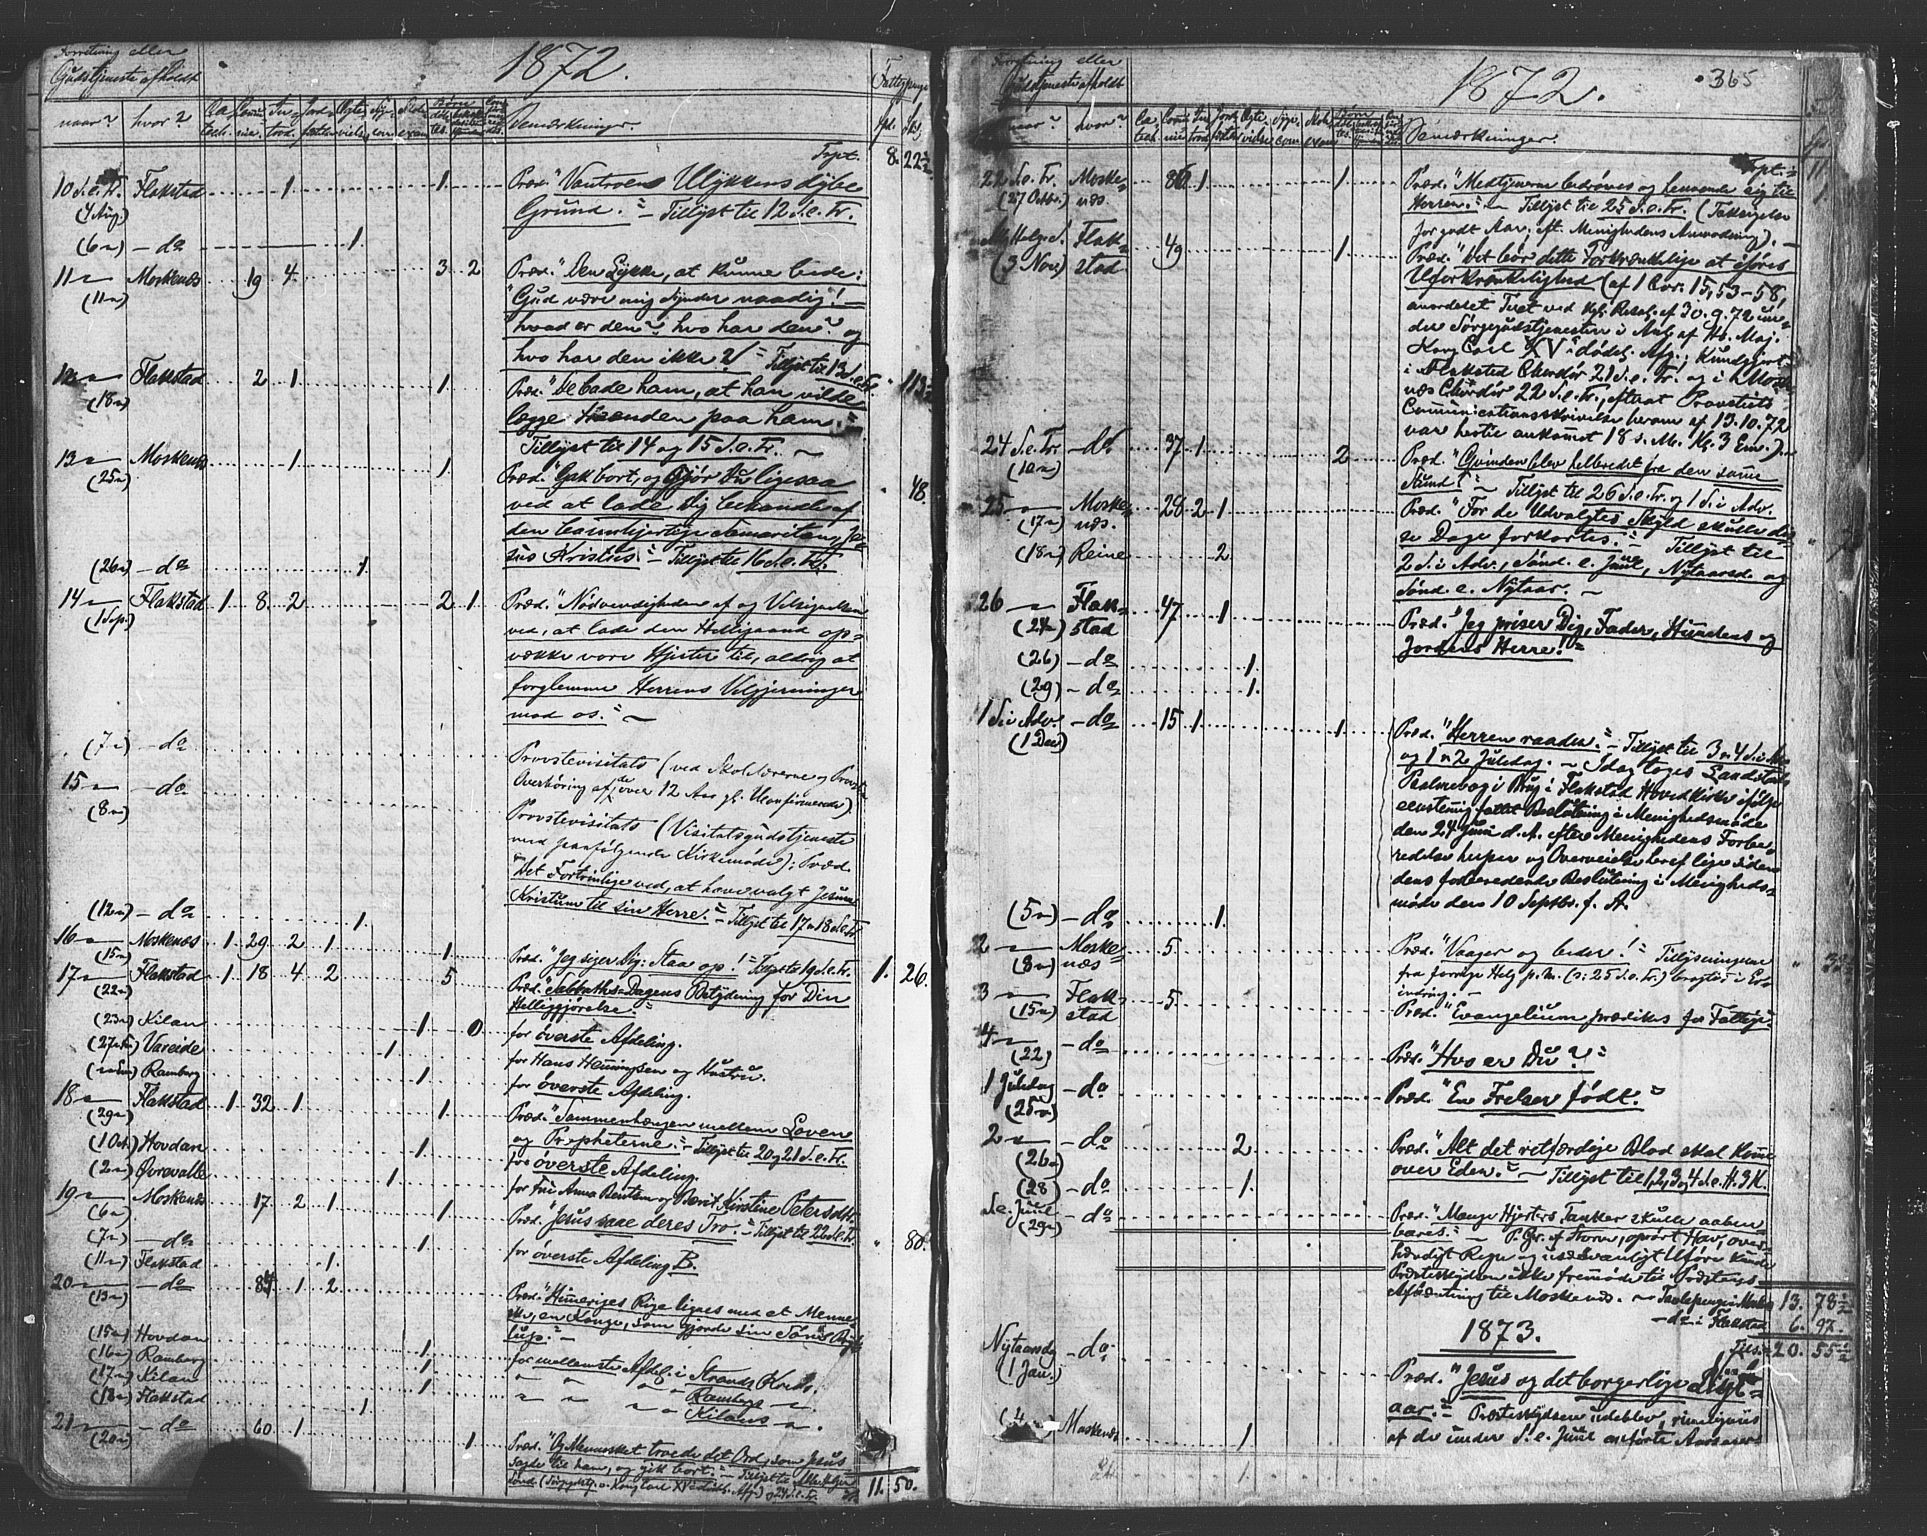 Forretning eller
Gudstjeneste afholdt
1872.
Fattigpenge
naar? hvor? Bemærkninger.
Trpt. 8. 22½
10 S.e.Tr. Flakstad 1 1 Præd. "Vantroens Ulykkens dybe
(4 Aug.) Grund." – Tillyst til 12 S.e.Tr.
(6 ") – do 1.
11 – Moskenæs 19 4 3 2 Præd. "Den Lykke, at kunne bede:
(11 ") "Gud være mig Synder naadig! –
hvad er den? hvo har den? og
hvo har den ikke?" Tillyst til 13 S.e.Tr.
12 – Flakstad 2 1 1 Præd. "De bade ham, at han vilde
(18 ") lægge Haanden paa ham."
Tillyst til 14 og 15 S.e.Tr. –
13 – Moskenæs 1 1 Præd. "Gak bort, og Gjør Du ligesaa 48.
(25 ") ved at lade Dig behandle af
den barmhjertige Samaritan, Je-
sus Kristus." – Tillyst til 16 S.e.Tr.
(26 ") – do 1.
14 – Flakstad 1 8. 2 2 1 Præd. "Nødvendigheden af og Velsignelsen
(1 Sep.) ved, at lade den Helligaand op-
vække vore Hjerter til, aldrig at
forglemme Herrens Velgjerninger
mod os." –
(7 ") – do Provstevisitats (ved Skolelærerne og Provsten
15 – – do Overhøring af de over 12 Aar gl. Uconfirmerede)
(8 ") Provstevisitats (Visitatsgudstjeneste
med paafølgende Kirkemøde); Præd.
"Det Fortrinlige ved, at have valgt Jesum
Kristum til sin Herre." – Tillyst til 17 " 18 S.e.Tr.
(12 ") – do 1.
16 – Moskenæs 1. 29 2 1 1 Præd. "Jeg siger Dig: Staa op!" Tillyst til 19 S.e.Tr. 1. 26.
(15 ")
17 – Flakstad 1. 18 4 2 5 Præd. "Sabbaths-Dagens Betydning for Din
(22 ") Helliggjørelse."
(23 ") Kilan 1 0 for øverste Afdeling.
(27 ") Vareide 1 for Hans Henningsen og Hustru.
Ramberg 1 for øverste Afdeling.
18 – Flakstad 1. 32 1 1 Præd. "Sammenhængen mellem Loven
(29 ") og Propheterne." – Tillyst til 20 og 21 S.e.Tr.
(1 Oct.) Hovdan 1 for øverste Afdeling.
(2 ") Ørevalle 1 for Fru Anna Bentsen og Berit Kirstine Petersdtr.
19 – Moskenæs 17 2 1 1 Præd. "Jesus saae deres Tro." – Tillyst til 22 S.e.Tr. 80.
(6 ")
(7 ") – do 1 for øverste Afdeling B.
(11 ") Flakstad 1.
20 – – do 84 1 2 Præd. "Himmeriges Rige lignes med et Menne-
(13 ") ske, en Konge, som gjorde sin Søns Bryl-
lup." –
(15 ") Hovdan
(16 ") Ramberg 1 for mellemste Afdel. i Strands Kreds.
(17 ") Kilan 1 Ramberg
(18 ") Flakstad 1 Kilans
21 – – do 60 1 1
(20 ") Præd. "Og Mennesket troede det Ord, som Jesus
sagde til ham, og gik bort." – Tillyst til Allehelgen
11. 50.
Forretning eller
Gudstjeneste afholdt
1872. 365
naar? hvor? Bemærkninger.
Trpt. 11
22 S.e.Tr. Moske- 86 1 1 Præd. "Mestrerne bedrøves og henvende sig til
(27 Octbr.) næs. Herren." – Tillyst til 25 S.e.Tr. (Taksigelse
for godt Aar, eft. Menighedens Anmodning). –
Allehelg. S. Flak- 49 1 Præd. "Det bør dette Forkrænkelige at iføres
(3 Nov.) stad Uforkrænkelighed (af 1 Cor. 15,53–58,
anordnet Text ved Kgl. Resol. af 30.9.72 un-
der Sørgegudstjenesten i Anl. af Hs. Maj.
Kong Carl XV's dødel. Afg.; Kundgjort
i Flakstad Chordør 21 S.e.Tr. og i Mosk-
næs Chordør 22 S.e.Tr., efterat Provstiets
Communicationsskrivelse herom af 13.10.72
var hertil ankomst 18 s. M. Kl. 3 Em.).
24 S.e.Tr. – do 37 1 2 Præd. "Qvinden blev helbredet fra den samme
(10 ") Stund!" – Tillyst til 26 S.e.Tr. og 1 S. i Adv.
25 – Moske- 28 2 1 Præd. "For de Udvalgtes Skyld skulle dis-
(17 ") næs. se Dage forkortes." Tillyst til
(18 ") Reine 2. 2 S. i Adv., Sønd. e. Juul, Nytaarsd. og
Sønd. e. Nytaar. –
26 – Flak- 47 1 Præd. "Jeg priser Dig, Fader, Himmelens og
(24 ") stad Jordens Herre!"
(26) – do 1.
(29) – do 1.
1 S. i Adv. – do 15 1 1 Præd. "Herren raader." – Tillyst til 3 " 4 S. i Adv.
(1 Dec.) og 1 " 2 Juledag. – Idag toges Landstads
Psalmebog i Brug i Flakstad Hovedkirke ifølge
eenstemmig fattet Beslutning i Menighedsmøde
den 24 Juni d. A. efter Menighedens Forbe-
redelse herpaa og Overveielse heraf lige siden
dens forberedende Beslutning i Menigheds-
møde den 10 Septbr. f. A.
(5 ") – do 1.
2 – Moske- 5. Præd. "Vaager og beder!" – Tillysningen
(8 ") næs fra forrige Helg p. M. (o: 25 S.e.Tr.) bragtes i Er-
indring. –
3 – Flak- 5. Præd. "Evangelium prædikes for Fattige."
(15 ") stad
4 – – do Præd. "Hvo er Du?"
(22)
1 Juledag – do Præd. "En Frelser født."
(25 ")
2 – – do 2 Præd. "Alt det retfærdige Blod skal komme
(26 ") over Eder." – Tillyst til 1, 2, 3, 4 S.e.H.3K.
(28) – do 1.
S.e. Juul – do Præd. "Mange Hjerters Tanker skulle aaben-
(29 ") bares." – P. Gr. af Storm, oprørt Hav, over-
hændigt Regn og usædvanligt Uføre kunde
Præsteskydsen ikke fremmøde til Præstens
Afhentning til Moskenæs. – Tavlepenge i Mosk. 13. 78½
– do – i Flakstad 6. 97.
Tils. 20. 55½
1873.
Nytaarsdg – do Præd. "Jesus og det borgerlige Nyt-
(1 Jan.) aar." – Præsteskydsen udeblev, rimeligviis
af de under S.e. Juul anførte Aarsager
(4 Moskenæs 1
1